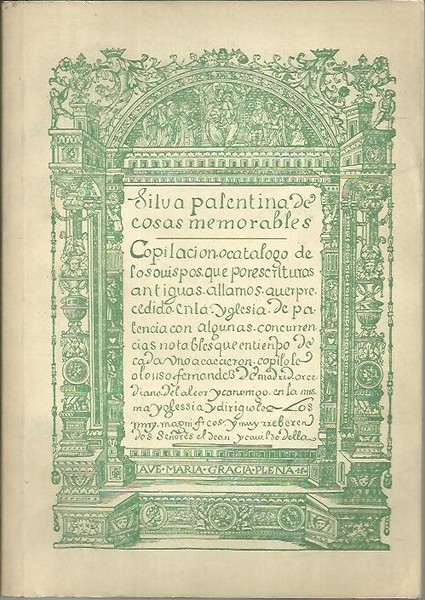 Silva palentina de
cosas memorables
Copilacion.o catalogo de
los ovispos.que por escrituras
antiguas.allamos.auer pre
cedido.en la yglesia.de pa
lencia con algunas.concurren
cias notables que en tienpo de
cada vno acaecieron.copilole
alonso fernandez de madrid.arce
diano.del alcor y canonigo.en la mis
ma yglessia.y dirigiole a los
muy.magnificos.y muy rreberen
dos señores el dean y cauildo della
AVE·MARIA·GRACIA·PLENA